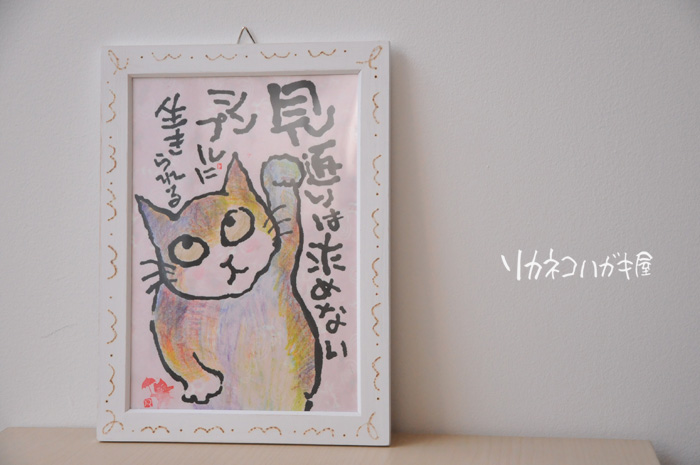 見返りは求めない
シンプルに
生きられる
ソカネコハガキ屋